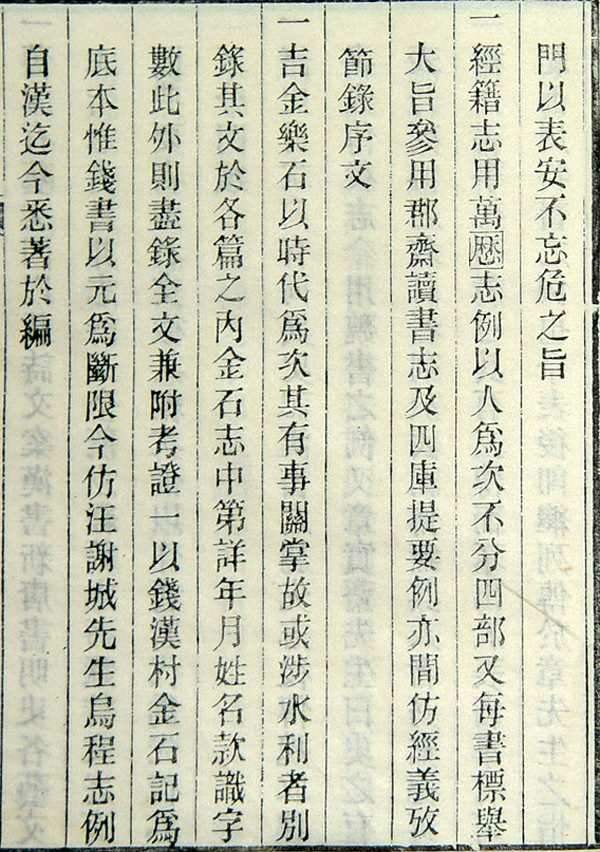 門以表安不忘危之旨
一經籍志用萬曆志例以人爲次不分四部又每書標舉
大旨參用郡齋讀書志及四庫提要例亦間仿經義攷
節錄序文
一吉金樂石以時代爲次其有事關掌故或涉水利者別
錄其文於各篇之內金石志中第詳年月姓名款識字
數此外則盡錄全文兼附考證一以錢漢村金石記爲
底本惟錢書以元爲斷限今仿汪謝城先生烏程志例
一自漢迄今悉著於編